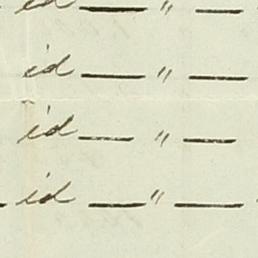 id — " —
id — " —
id — " —
— id — " —